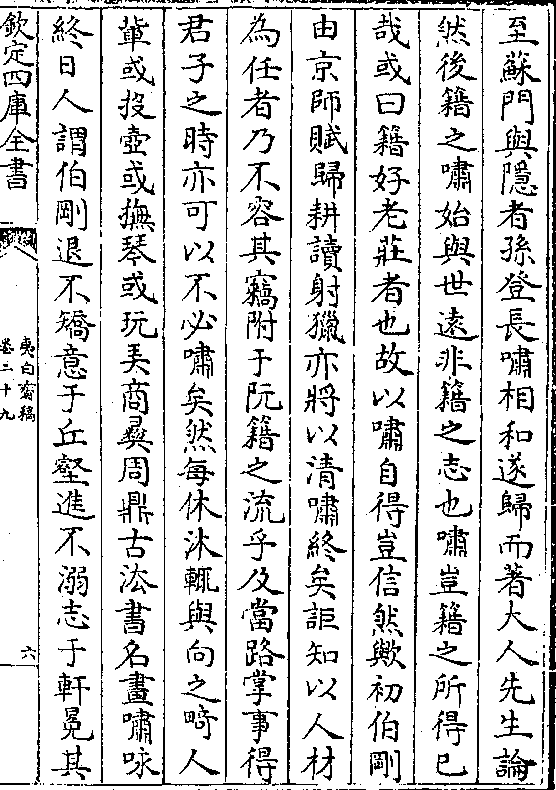 至蘇門與隱者孫登長嘯相和遂歸而著大人先生論
然後籍之嘯始與世遠非籍之志也嘯豈籍之所得已
哉或曰籍好老莊者也故以嘯自得豈信然歟初伯剛
由京師賦歸耕讀射獵亦將以清嘯終矣詎知以人材
為任者乃不容其竊附于阮籍之流乎及當路掌事得
君子之時亦可以不必嘯矣然每休沐輒與向之畸人
輩或投壺或撫琴或玩弄商彜周鼎古法書名畫嘯咏
終日人謂伯剛退不矯意于丘壑進不溺志于軒冕其
欽定四庫全書
夷白齋稿
卷二十九
六